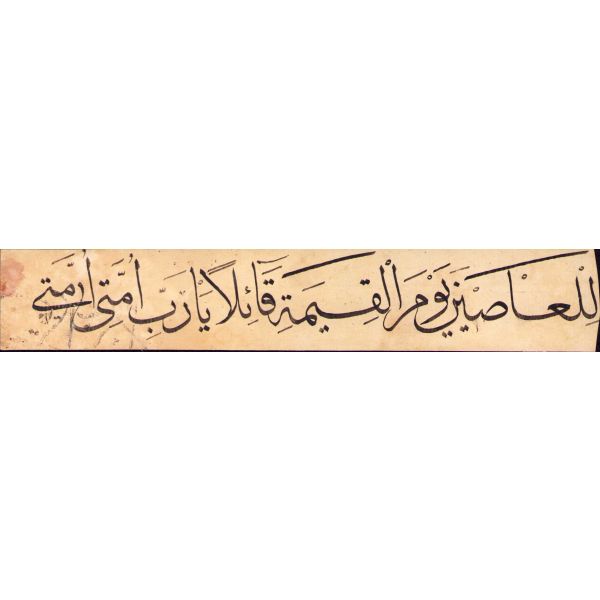 لِلْعَاصِينَ يَوْمَ الْقِيمَةِ قَائِلاً يَارَبِّ اُمَّتِى اُمَّتِى